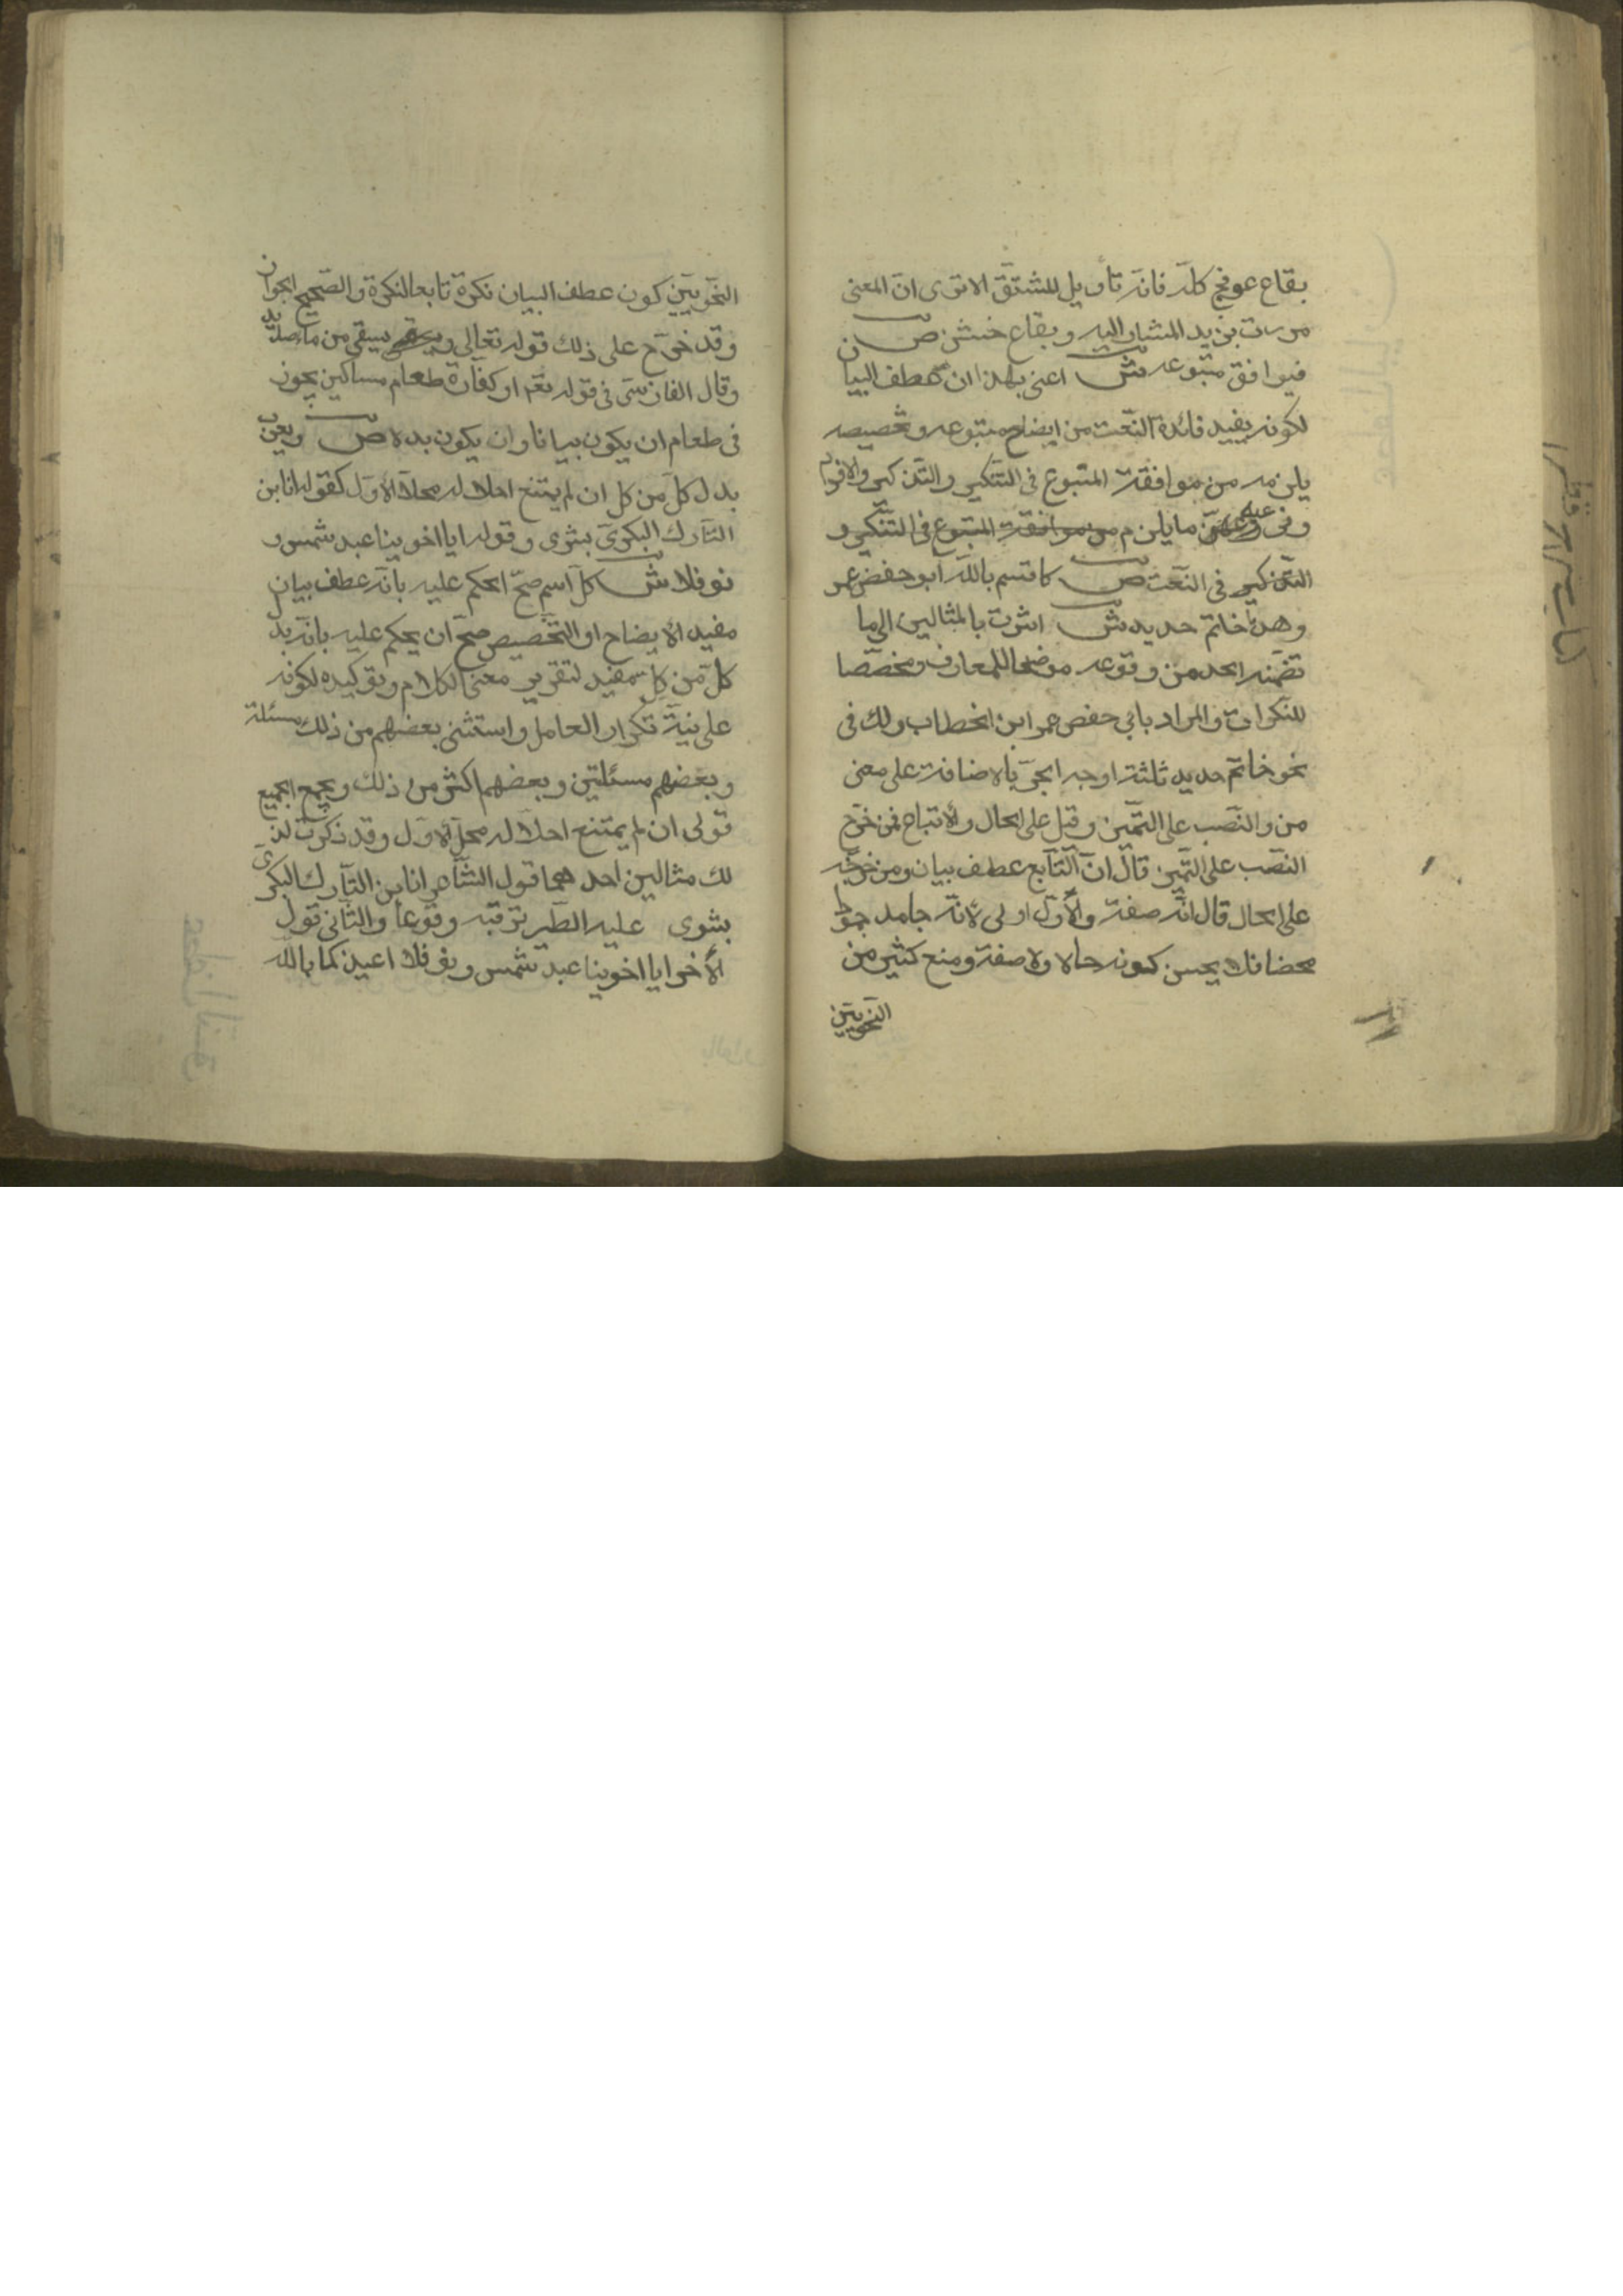 بقاع عرفج كله فانه تأويل للمشتق الا ترى ان المعنى
مررت بزيد المشار اليه وبقاع خشن ص
فيوافق متبوعه ش اعنى بهذا ان عطف البيان
لكونه يفيد فائدة النعت من ايضاح متبوعه وتخصيصه
يلزمه من موافقة المتبوع فى التنكير والتذكير والافراد
وفى ما يلزم من موافقة المتبوع فى التنكير و
التذكير فى النعت ص كاقسم بالله ابو حفص عمر
وهذا خاتم حديد ش اشرت بالمثالين الى ما
تضمنه الحد من وقوعه موضحا للمعارف ومخصصا
للنكرات والمراد بابى حفص عمر ابن الخطاب ولك فى
نحو خاتم حديد ثلثة اوجه الجر بالاضافة على معنى
من والنصب على التميز وقيل على الحال والاتباع فمن خرج
النصب على التميز قال ان التابع عطف بيان ومن خرجه
على الحال قال انه صفة والأول اولى لانه جامد جمودا
محضا فلا يحسن كونه حالا ولا صفة ومنع كثير من
النحويين
النحويين كون عطف البيان نكرة تابعا لنكرة والصحيح الجواز
وقد خرج على ذلك قوله تعالى ويسقى من ماء صديد
وقال الفارسى فى قوله تعم او كفارة طعام مساكين يجوز
فى طعام ان يكون بيانا وان يكون بدلا ص ويعرب
بدل كل من كل ان لم يمتنع احلاله محل الأول كقوله انا ابن
التارك البكرى بشرى وقوله ايا اخوينا عبد شمس و
نوفلا ش كل اسم صح الحكم عليه بانه عطف بيان
مفيد الأيضاح او التخصيص صح ان يحكم عليه بانه بدل
كل من كل مفيد لتقرير معنى الكلام وتوكيده لكونه
على نية تكرار العامل واستثنى بعضهم من ذلك مسئلة
وبعضهم مسئلتين وبعضهم اكثر من ذلك ويجمع الجميع
قولى ان لم يمتنع احلاله محل الاول وقد ذكرت لذ
لك مثالين احدهما قول الشاعر انا ابن التارك البكرى
بشرى عليه الطير ترقبه وقوعا والثانى قول
الأخر ايا اخوينا عبد شمس ونوفلا اعيذكما بالله